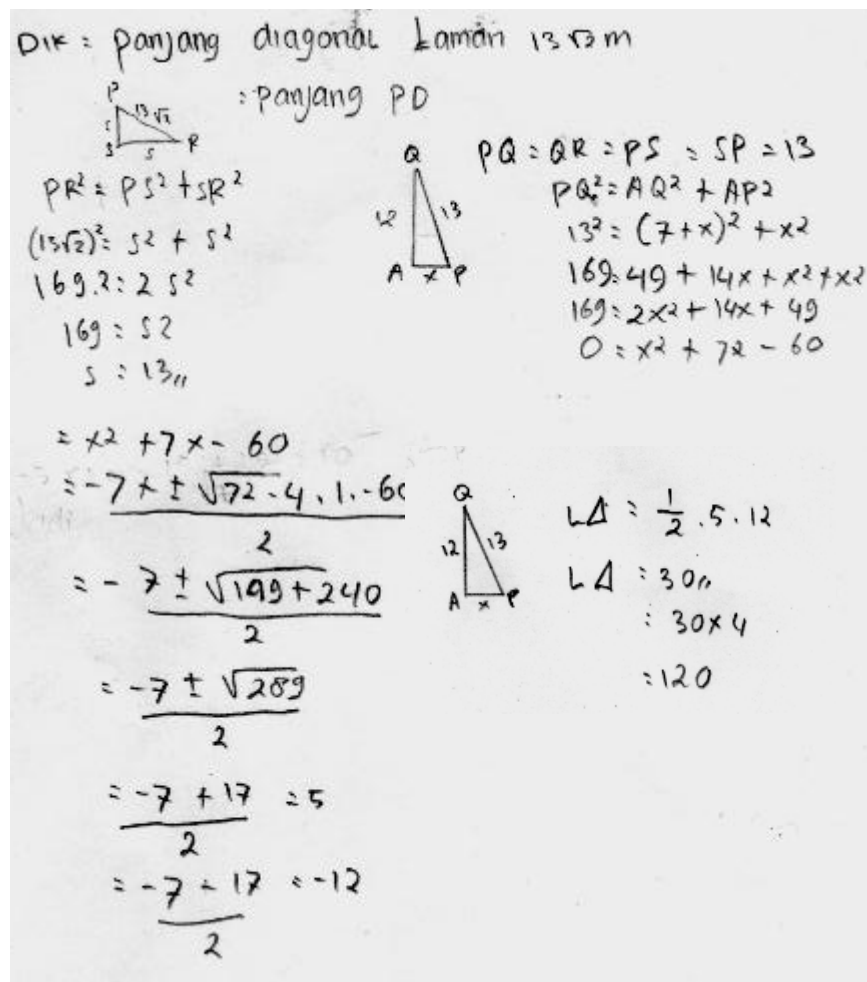 DIK : panjang diagonal taman 13√2 m
: panjang PD
P
13√2
S
S
S
R
PR² = PS² + SR²
(13√2)² = S² + S²
169.2 = 2 S²
169 = S2
S = 13,,
Q
12
13
A
x
P
PQ = QR = PS = SP = 13
PQ² = AQ² + AP2
13² = (7+x)² + x2
169 = 49 + 14x + x2 + x2
169 = 2x2 + 14x + 49
0 = x2 + 7x - 60
= x2 + 7x - 60
= -7 + ± √72 - 4 . 1 . -60
2
= - 7 ± √149 + 240
2
= -7 ± √289
2
= -7 + 17 = 5
2
= -7 - 17 = -12
2
Q
12
13
A
x
P
LΔ = 1/2 . 5 . 12
LΔ = 30,,
: 30 x 4
: 120